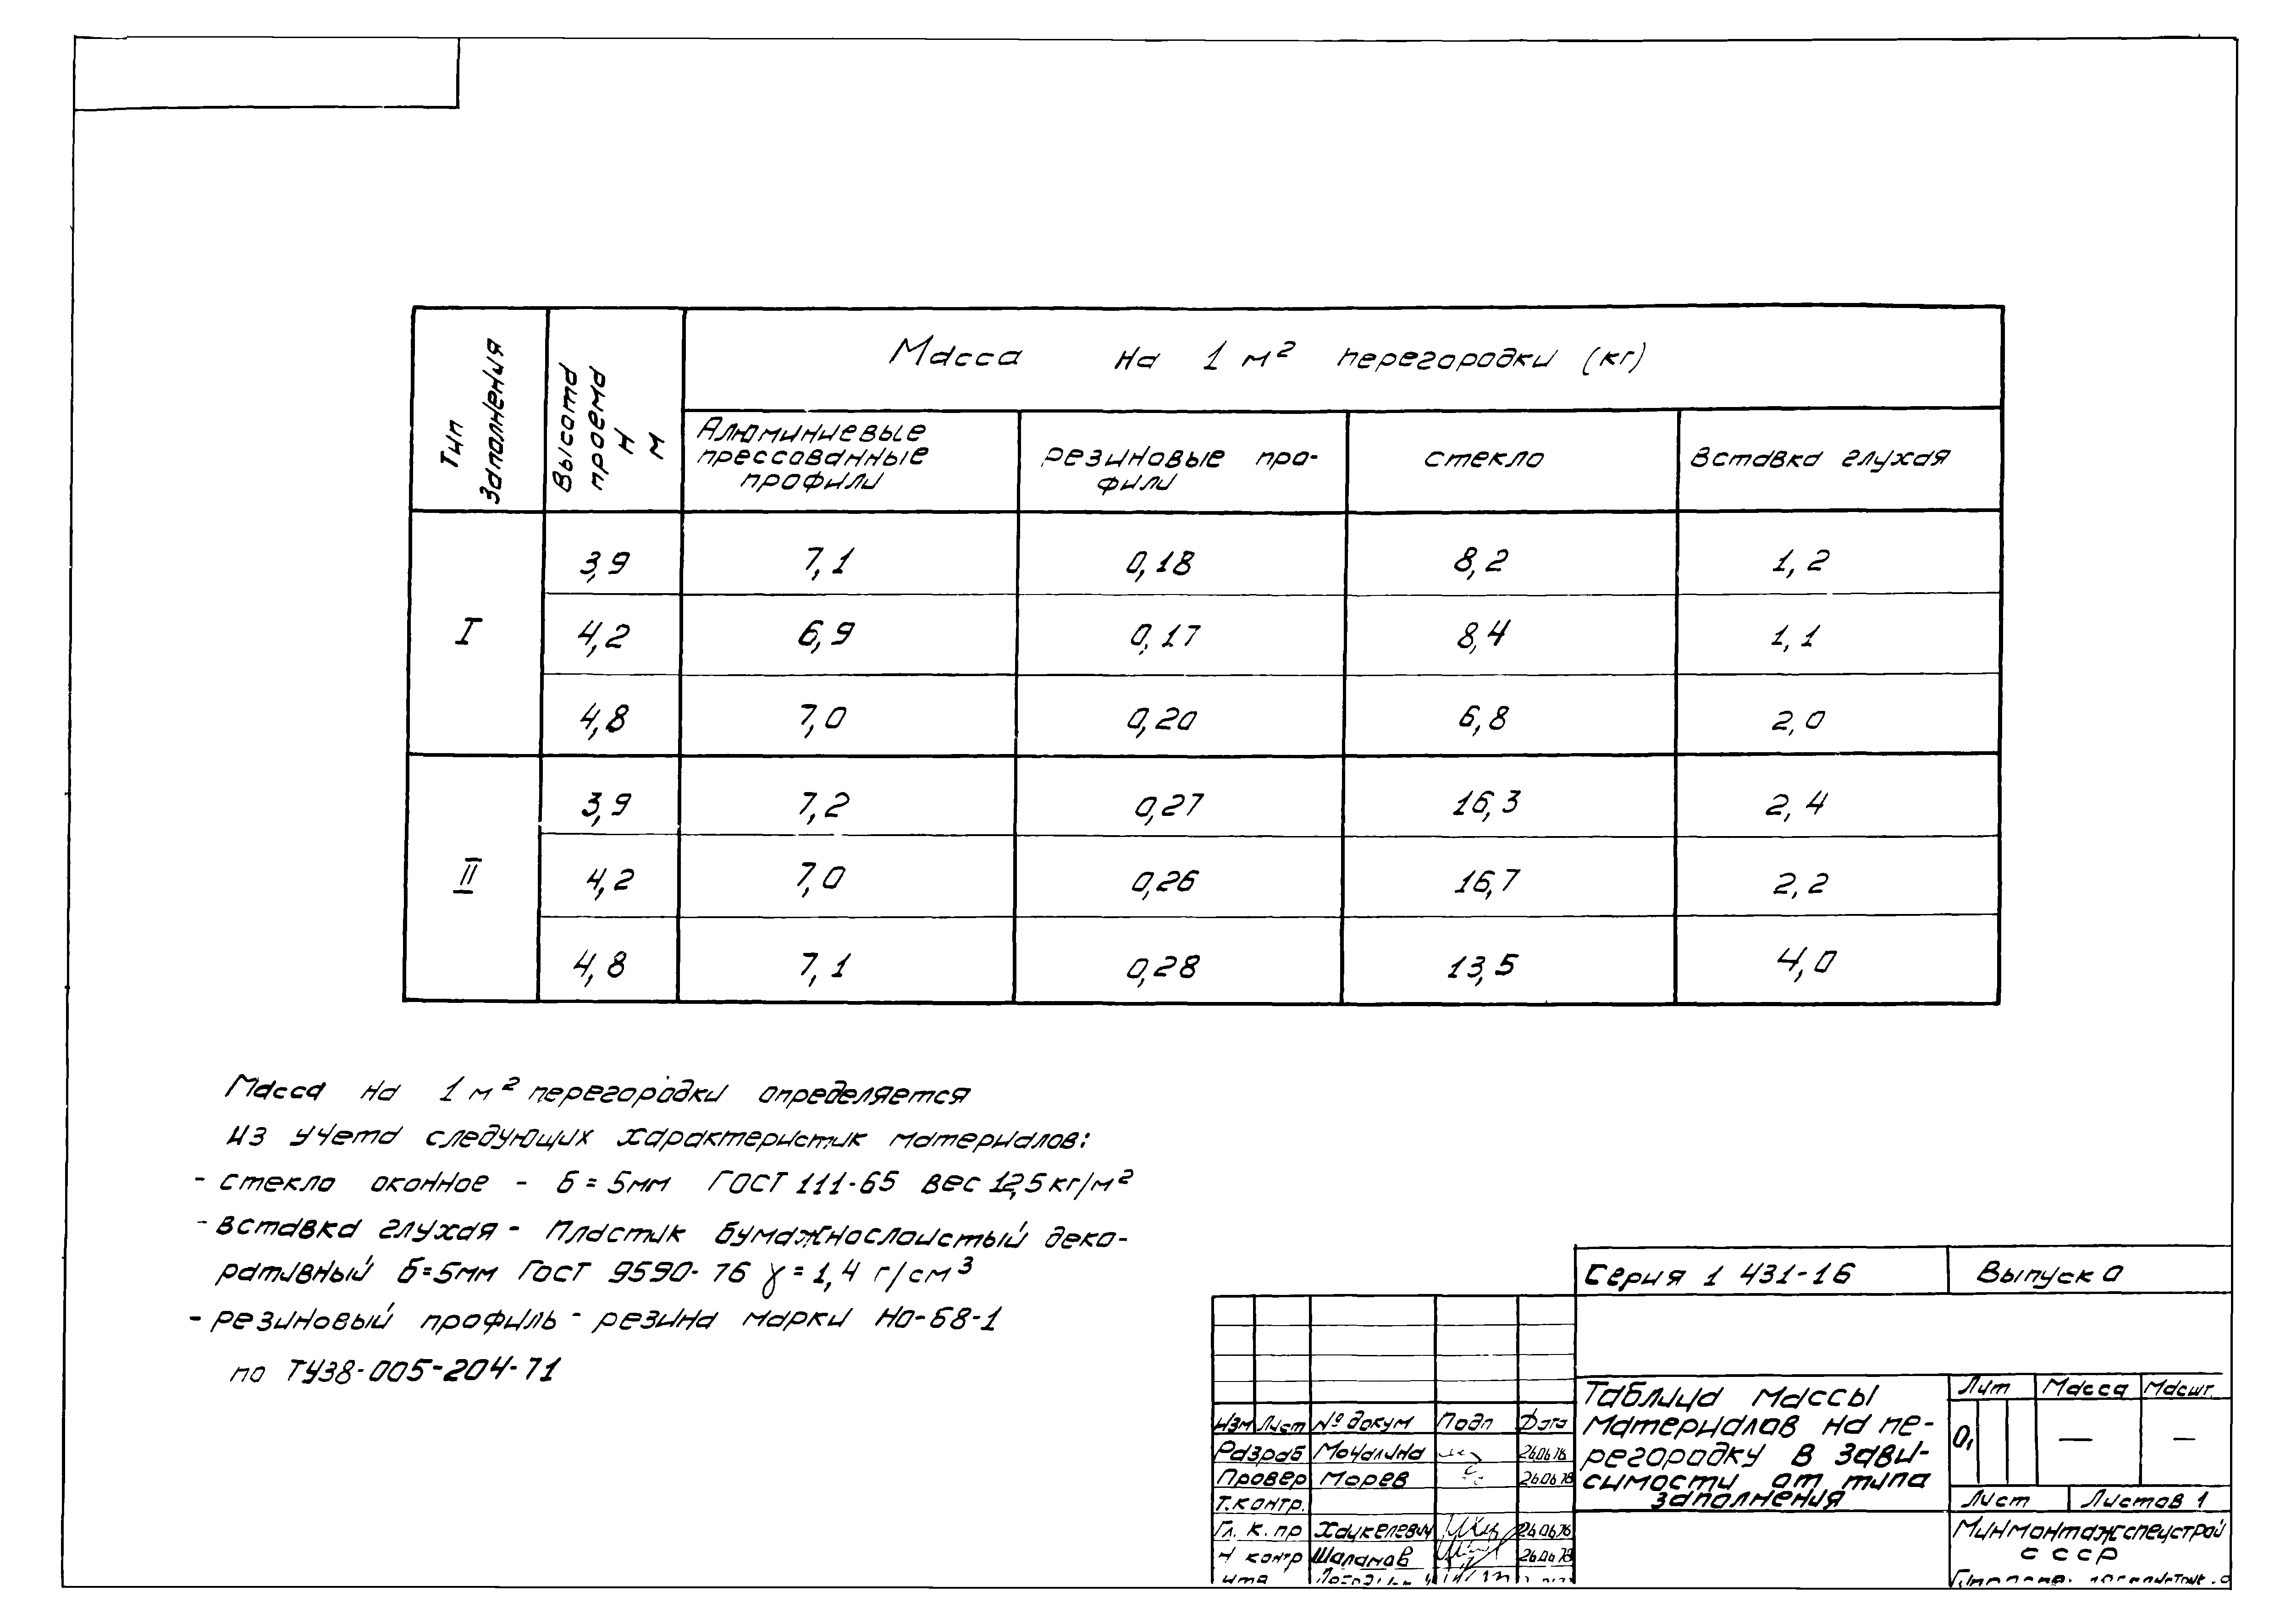 Тип заполнения
Высота проема Н м
Масса на 1 м² перегородки (кг)
Алюминиевые
прессованные
профили
резиновые про-
фили
стекло
вставка глухая
I
3,9 7,1 0,18 8,2 1,2
4,2 6,9 0,17 8,4 1,1
4,8 7,0 0,20 6,8 2,0
II
3,9 7,2 0,27 16,3 2,4
4,2 7,0 0,26 16,7 2,2
4,8 7,1 0,28 13,5 4,0
Масса на 1 м² перегородки определяется
из учета следующих характеристик материалов:
- стекло оконное - б = 5мм ГОСТ 111-65 вес 12,5 кг/м²
- вставка глухая - Пластик бумажнослоистый деко-
ративный б=5мм ГОСТ 9590-76 γ = 1,4 г/см³
- резиновый профиль - резина марки НО-68-1
по ТУ38-005-204-71
Серия 1 431-16 Выпуск 0
Таблица массы
материалов на пе-
регородку в зави-
симости от типа
заполнения
Лит Масса Масшт.
0, — —
Лист Листов 1
Минмонтажспецстрой
СССР
Изм Лист № докум Подп Дата
Разраб Мочалина 26.06.78
Провер Морев 26.06.78
Т.контр.
Гл. к. пр Хацкелевич 26.06.78
Н контр Шаламов 26.06.78